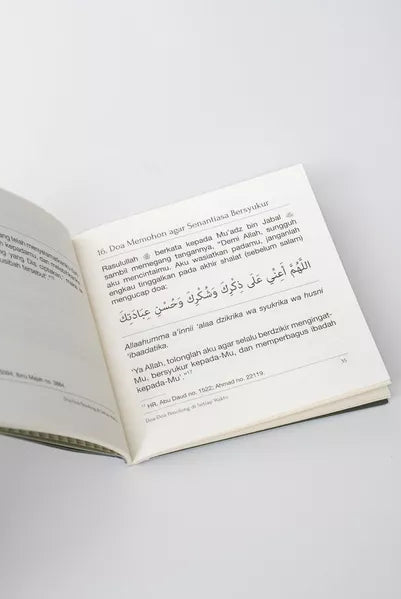 kepada-mu,
yang Dia
Ibnu Majah no. 3884.
16. Doa Memohon agar Senantiasa Bersyukur
Rasulullah ﷺ berkata kepada Mu'adz bin Jabal ؓ
sambil memegang tangannya, "Demi Allah, sungguh
aku mencintaimu. Aku wasiatkan padamu, janganlah
engkau tinggalkan pada akhir shalat (sebelum salam)
mengucap doa:
اَللَّهُمَّ أَعِنِّي عَلَى ذِكْرِكَ وَشُكْرِكَ وَحُسْنِ عِبَادَتِكَ
Allaahumma a'innii 'alaa dzikrika wa syukrika wa husni
'ibaadatika.
'Ya Allah, tolonglah aku agar selalu berdzikir mengingat-
Mu, bersyukur kepada-Mu, dan memperbagus ibadah
kepada-Mu'."¹⁷
¹⁷ HR. Abu Daud no. 1522; Ahmad no. 22119.
Doa-Doa Penolong di Setiap Waktu
35